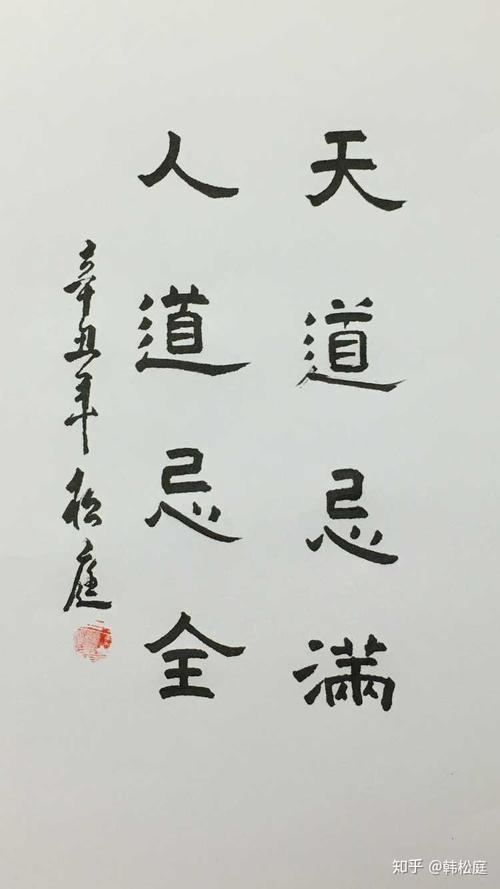 天道忌满
人道忌全
辛丑年 松庭
知乎 @韩松庭